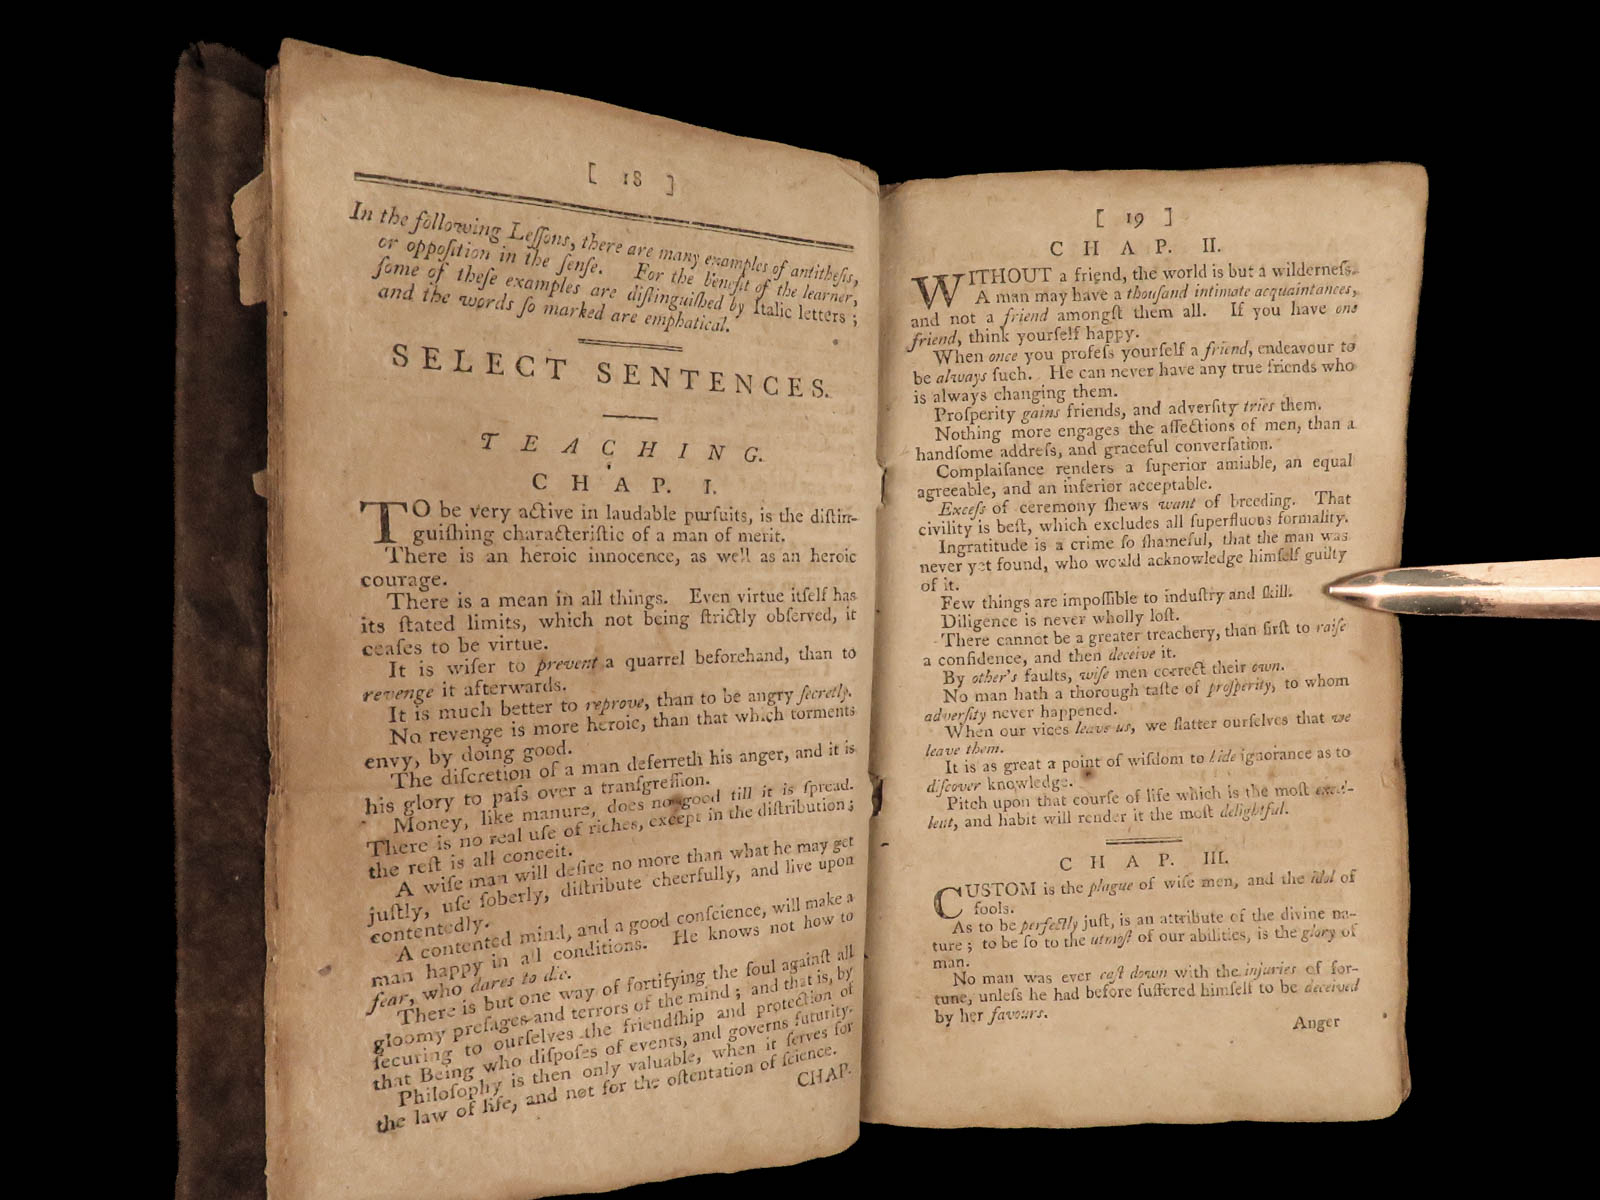 [ 18 ]
In the following Leſſons, there are many examples of antitheſis,
or oppoſition in the ſenſe. For the benefit of the learner,
ſome of theſe examples are diſtinguiſhed by Italic letters;
and the words ſo marked are emphatical.
SELECT SENTENCES.
TEACHING.
CHAP. I.
TO be very active in laudable purſuits, is the diſtin-
guiſhing characteriſtic of a man of merit.
There is an heroic innocence, as well as an heroic
courage.
There is a mean in all things. Even virtue itſelf has
its ſtated limits, which not being ſtrictly obſerved, it
ceaſes to be virtue.
It is wiſer to prevent a quarrel beforehand, than to
revenge it afterwards.
It is much better to reprove, than to be angry ſecretly.
No revenge is more heroic, than that which torments
envy, by doing good.
The diſcretion of a man deferreth his anger, and it is
his glory to paſs over a tranſgreſſion.
Money, like manure, does no good till it is ſpread.
There is no real uſe of riches, except in the diſtribution;
the reſt is all conceit.
A wiſe man will deſire no more than what he may get
juſtly, uſe ſoberly, diſtribute cheerfully, and live upon
contentedly.
A contented mind, and a good conſcience, will make a
man happy in all conditions. He knows not how to
fear, who dares to die.
There is but one way of fortifying the ſoul againſt all
gloomy preſages and terrors of the mind; and that is, by
ſecuring to ourſelves the friendſhip and protection of
that Being who diſpoſes of events, and governs futurity.
Philoſophy is then only valuable, when it ſerves for
the law of life, and not for the oſtentation of ſcience.
CHAP.
[ 19 ]
CHAP. II.
WITHOUT a friend, the world is but a wilderneſs.
A man may have a thouſand intimate acquaintances,
and not a friend amongſt them all. If you have one
friend, think yourſelf happy.
When once you profeſs yourſelf a friend, endeavour to
be always ſuch. He can never have any true friends who
is always changing them.
Proſperity gains friends, and adverſity tries them.
Nothing more engages the affections of men, than a
handſome addreſs, and graceful converſation.
Complaiſance renders a ſuperior amiable, an equal
agreeable, and an inferior acceptable.
Exceſs of ceremony ſhews want of breeding. That
civility is beſt, which excludes all ſuperfluous formality.
Ingratitude is a crime ſo ſhameful, that the man was
never yet found, who would acknowledge himſelf guilty
of it.
Few things are impoſſible to induſtry and ſkill.
Diligence is never wholly loſt.
There cannot be a greater treachery, than firſt to raiſe
a confidence, and then deceive it.
By other's faults, wiſe men correct their own.
No man hath a thorough taſte of proſperity, to whom
adverſity never happened.
When our vices leave us, we flatter ourſelves that we
leave them.
It is as great a point of wiſdom to hide ignorance as to
diſcover knowledge.
Pitch upon that courſe of life which is the moſt excel-
lent, and habit will render it the moſt delightful.
CHAP. III.
CUSTOM is the plague of wiſe men, and the idol of
fools.
As to be perfectly juſt, is an attribute of the divine na-
ture; to be ſo to the utmoſt of our abilities, is the glory of
man.
No man was ever caſt down with the injuries of for-
tune, unleſs he had before ſuffered himſelf to be deceived
by her favours.
Anger